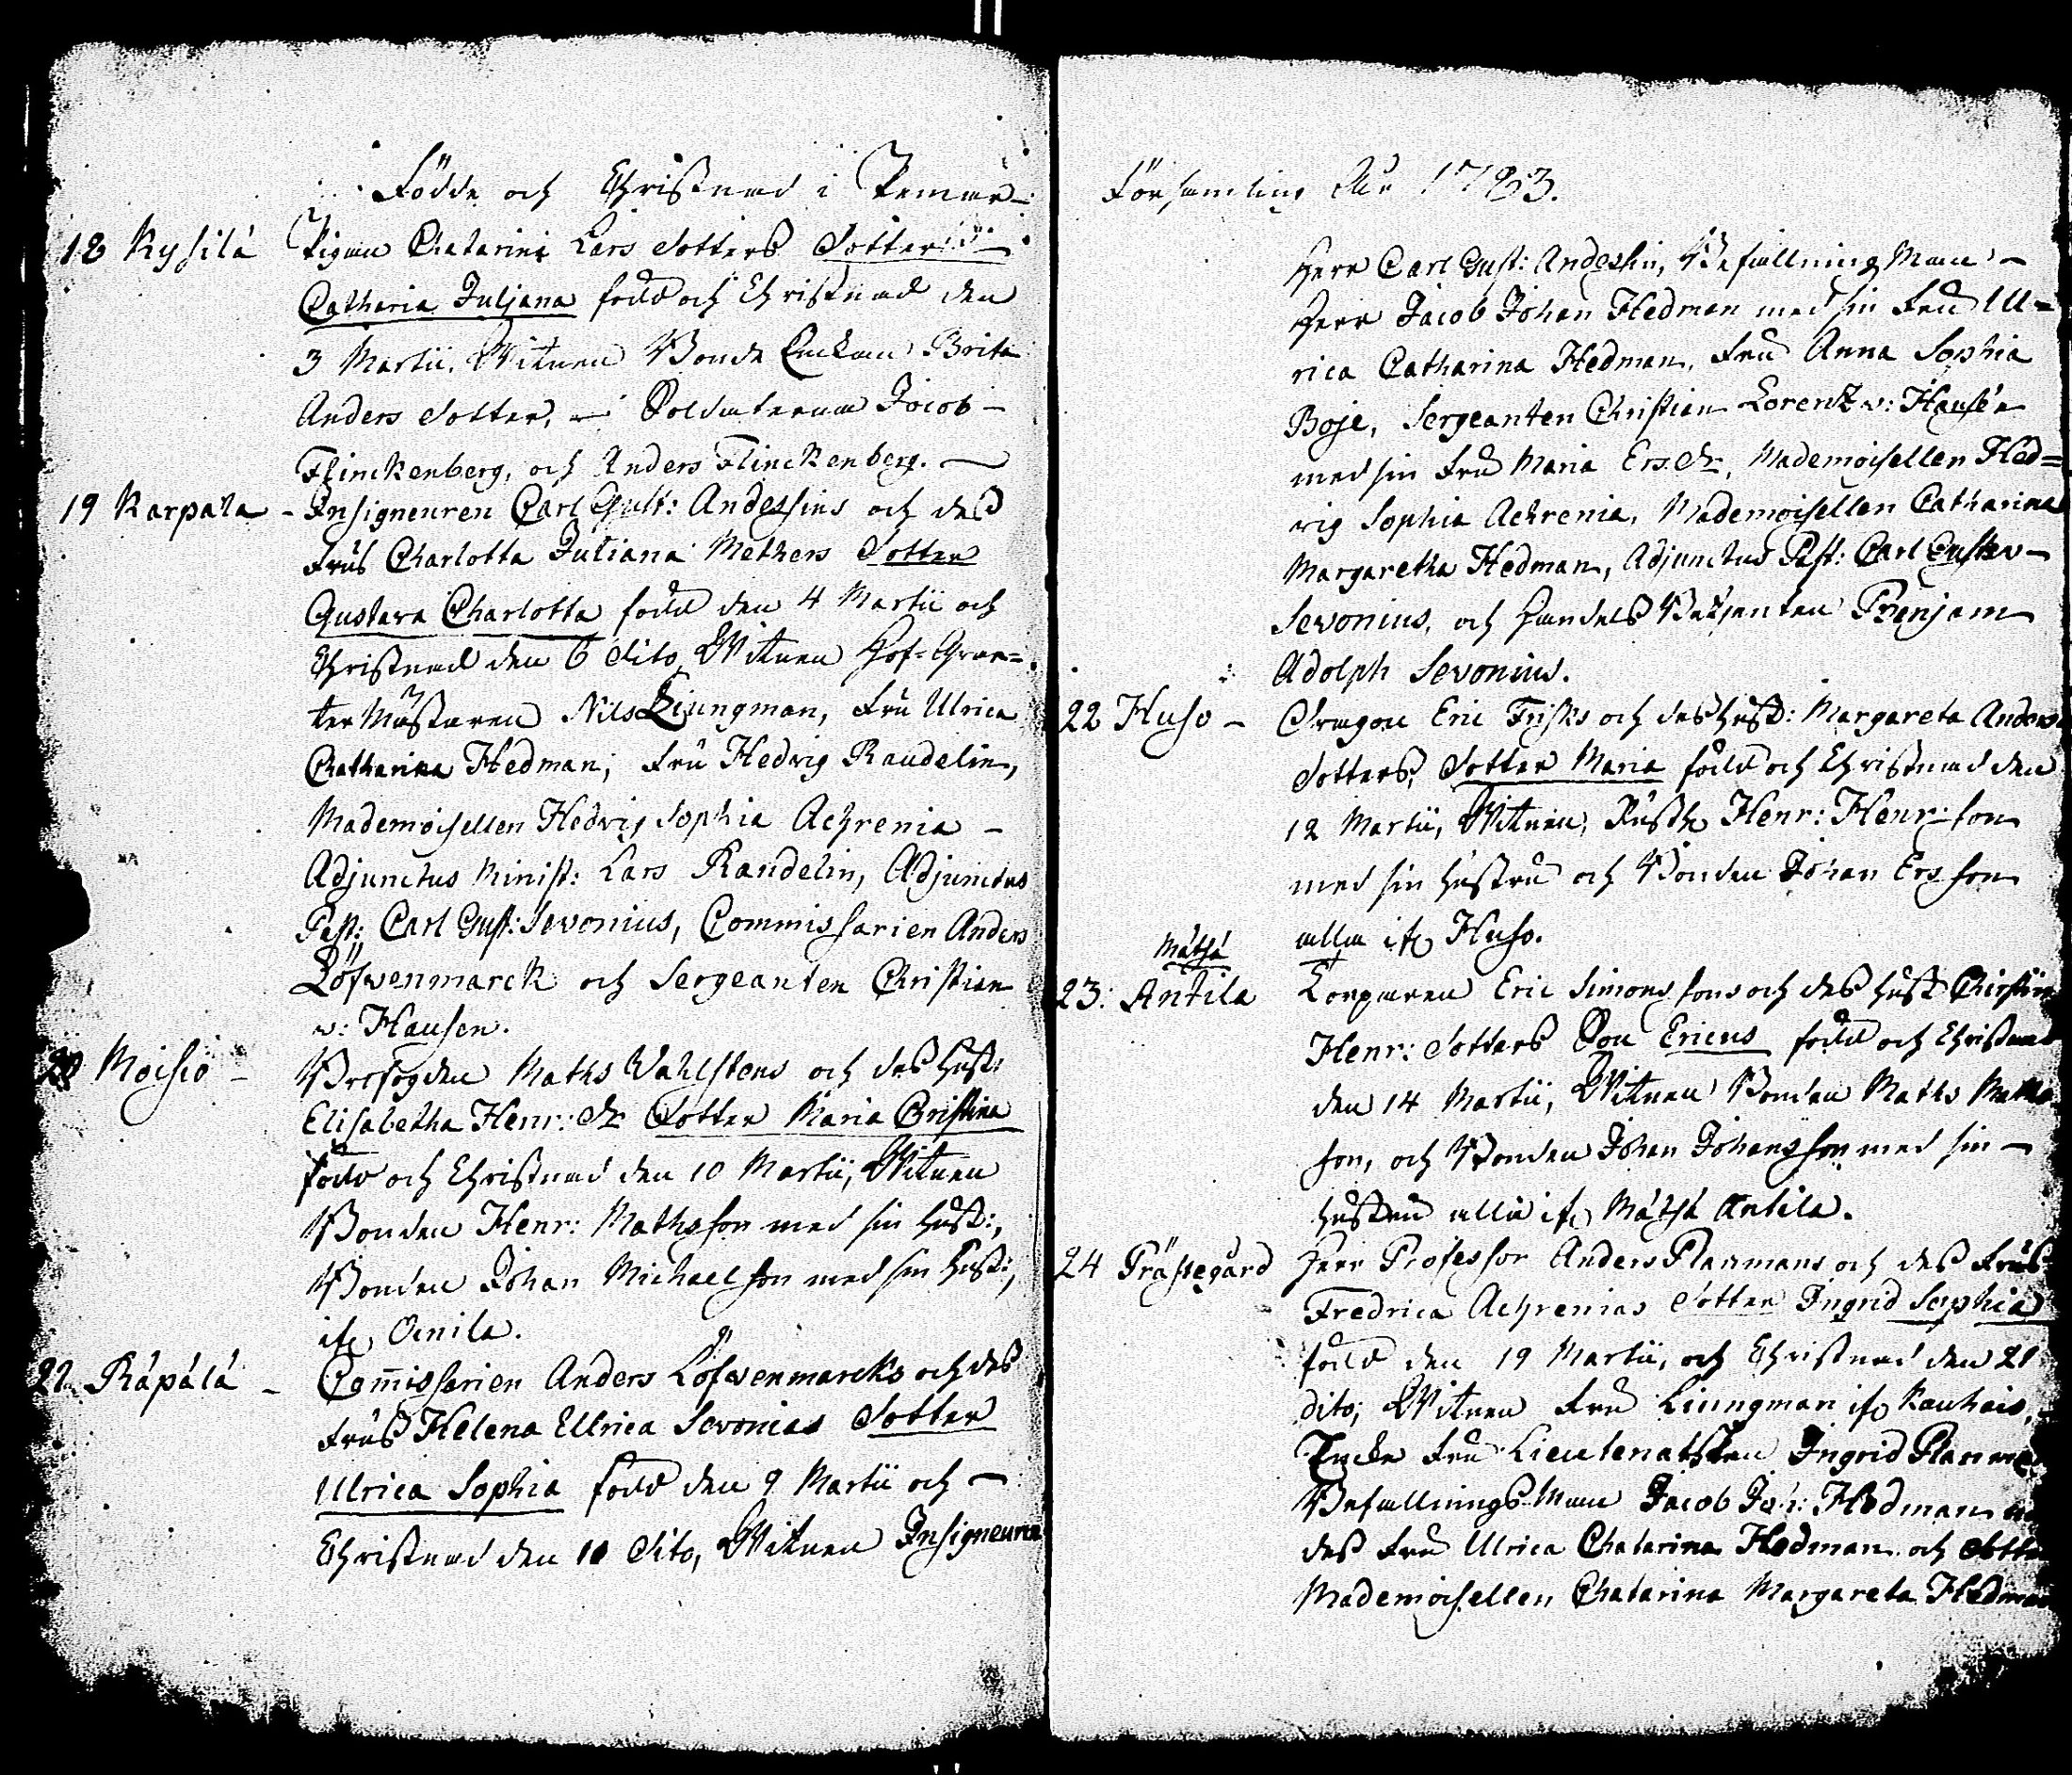 Födde och Christnad i Pemar-
18 Kysilä Pigan Chatarina Lars dotters Dotter
Catharia Juljana född och Christnad den
3 Martii, Witnen Bonde Enckan Brita
Anders dotter, Soldaterna Jacob
Flinckenberg, och Anders Flinckenberg.
19 Karpala - Insigneuren Carl Gust: Andessins och des
Frus Charlotta Juliana Methers Dotter
Gustava Charlotta född den 4 Martii och
Christnad den 6 dito, Witnen Hof-Qvar=
ter Mästaren Nils Liungman, Fru Ulrica
Chatharina Hedman, Fru Hedvig Randelin,
Mademoisellen Hedvig Sophia Achrenia -
Adjunctus Minist: Lars Randelin, Adjunctus
Past: Carl Gust: Sevonius, Commissarien Anders
Löfwenmarck och Sergeanten Christian
v: Hausen.
20 Moisio - Brofogden Maths Wahlstens och des Hust:
Elisabetha Henr: dr Dotter Maria Cristina
född och Christnad den 10 Martii, Witnen
Bonden Henr: Mathsson med sin Hust:,
Bonden Johan Michaelson med sin Hust:,
ifr Oinila.
21 Räpälä - Com̄issarien Anders Löfwenmarcks och des
Frus Helena Ullrica Sevonias Dotter
Ulrica Sophia född den 9 Martii och -
Christnad den 10 dito, Witnen Insigneuren
Församling Åhr 1793.
Herr Carl Gust: Andessin, Befallnings Man -
Herr Jacob Johan Hedman med sin Fru Ul=
rica Catharina Hedman, Fru Anna Sophia
Boje, Sergeanten Christian Lorentz v: Hausen
med sin Fru Maria Ers. dr, Mademoisellen Hed=
vig Sophia Achrenia, Mademoisellen Catharina
Margaretha Hedman, Adjunctus Past: Carl Gustav -
Sevonius, och Handels Betjenten Benjam
Adolph Sevonius.
22 Huso - Dragon Eric Frisks och des Hust: Margareta Anders
dotters, Dotter Maria född och Christnad den
12 Martii, Witnen, Rusth Henr: Henr: son
med sin Hustru och Bonden Johan Ersson
alla ifr Huso.
Mätsä
23: Antila Torparen Eric Simonssons och des Hust Christin
Henr: dotters Son Ericus född och Christnad
den 14 Martii, Witnen Bonden Maths Maths
son, och Bonden Johan Johansson med sin -
Hustru alla ifr Mätsä Antila.
24 Prästegård Herr Professor Anders Planmans och des Frus
Fredrica Achrenias Dotter Ingrid Sophia
född den 19 Martii, och Christnad den 21
dito, Witnen Fru Liungman ifr Kauhais,
Encke Fru Lieutenatskan Ingrid Planman
Befallnings Man Jacob Joh: Hedman
des Fru Ulrica Chatarina Hedman och dotter
Mademoisellen Chatarina Margareta Hedman